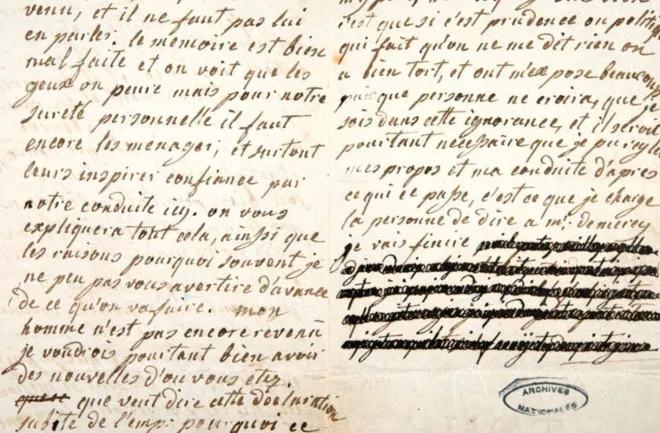 venu, et il ne faut pas lui
en parler. le memoire est bien
mal faite et on voit que les
geux on peure mais pour notre
sureté personnelle il faut
encore les menager, et surtout
leurs inspirer confiance par
notre conduite icy. on vous
expliquera tout cela, ainsi que
les raisons pourquoi souvent je
ne peu pas vous avertire d'avance
de ce qu'on va faire. mon
homme n'est pas encore revenu
je voudrois pourtant bien avoir
des nouvelles d'ou vous etez.
que veut dire cette déclaration
subite de l'emp: pourquoi ce
c'est que si c'est prudence ou politique
qui fait qu'on ne me dit rien on
a bien tort, et ont m'expose beaucoup
puis que personne ne croira, que je
sois dans cette ignorance, et il seroit
pourtant necessaire que je puis regle
mes propos et ma conduite d'apres
ce qui ce passe, c'est ce que je charge
la personne de dire a mr: de mercy
je vais finire
ARCHIVES
NATIONALES